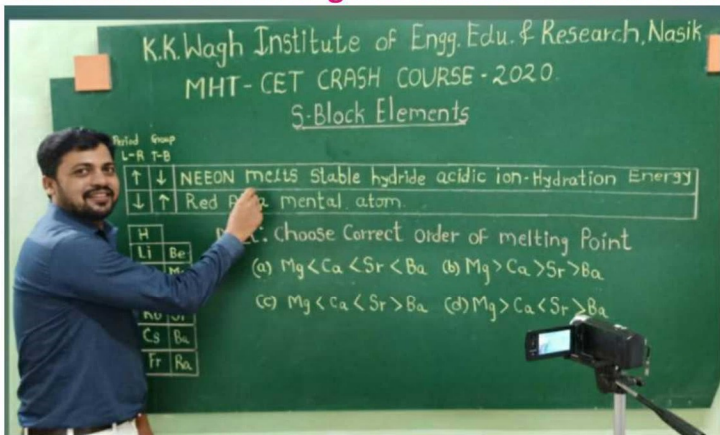 K.K.Wagh Institute of Engg. Edu. & Research, Nasik
MHT-CET CRASH COURSE-2020.
S-Block Elements
Period Group
L-R T-B
↑ ↓ NEEON melts stable hydride acidic ion-Hydration Energy
↓ ↑ Red mental atom.
H
choose Correct order of melting Point
Li Be
(a) Mg<Ca<Sr<Ba (b) Mg>Ca>Sr>Ba
(c) Mg<Ca<Sr>Ba (d) Mg>Ca<Sr>Ba
Cs Ba
Fr Ra